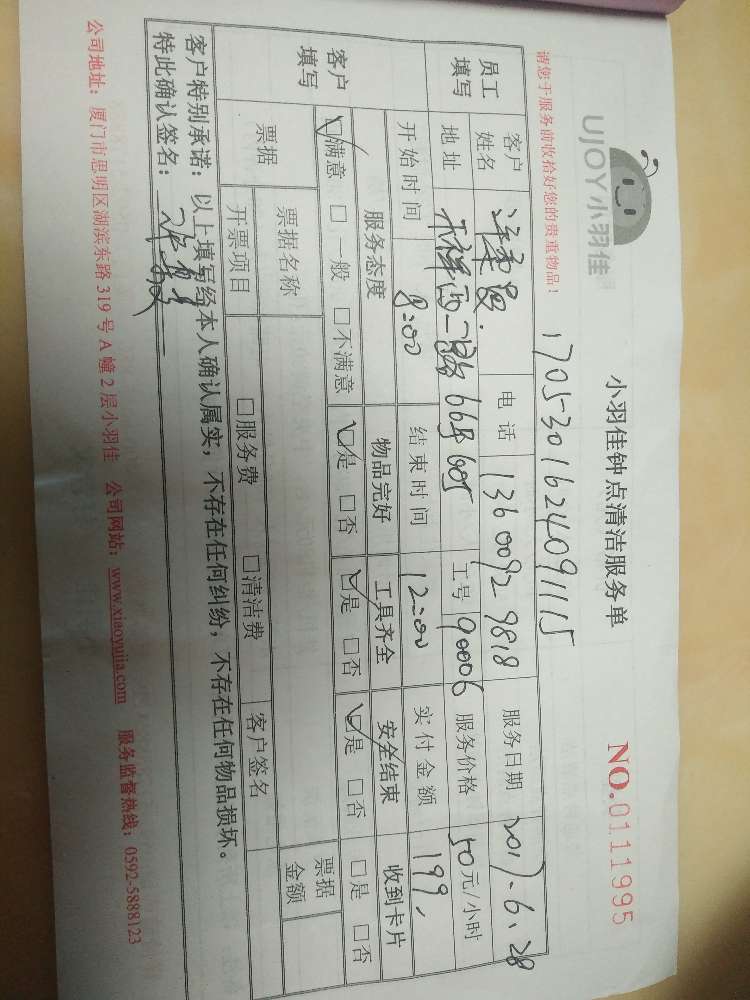 UJOY小羽佳
小羽佳钟点清洁服务单
NO.0111995
请您于服务前收拾好您的贵重物品！
1705301624091115
员工填写 客户姓名 电话 1360092 9818 服务日期 2017.6.28
地址 祥西二路66号605 工号 90006 服务价格 50元/小时
开始时间 8:00 结束时间 12:00 实付金额 199.
客户填写 服务态度 物品完好 工具齐全 安全结束 收到卡片
☑满意 □一般 □不满意 ☑是 □否 ☑是 □否 ☑是 □否 □是 □否
票据 票据名称 票据金额
开票项目 □服务费 □清洁费 客户签名
客户特别承诺：以上填写经本人确认属实，不存在任何纠纷，不存在任何物品损坏。
特此确认签名：
公司地址：厦门市思明区湖滨东路319号A幢2层小羽佳 公司网站：www.xiaoyujia.com 服务监督热线：0592-5888123